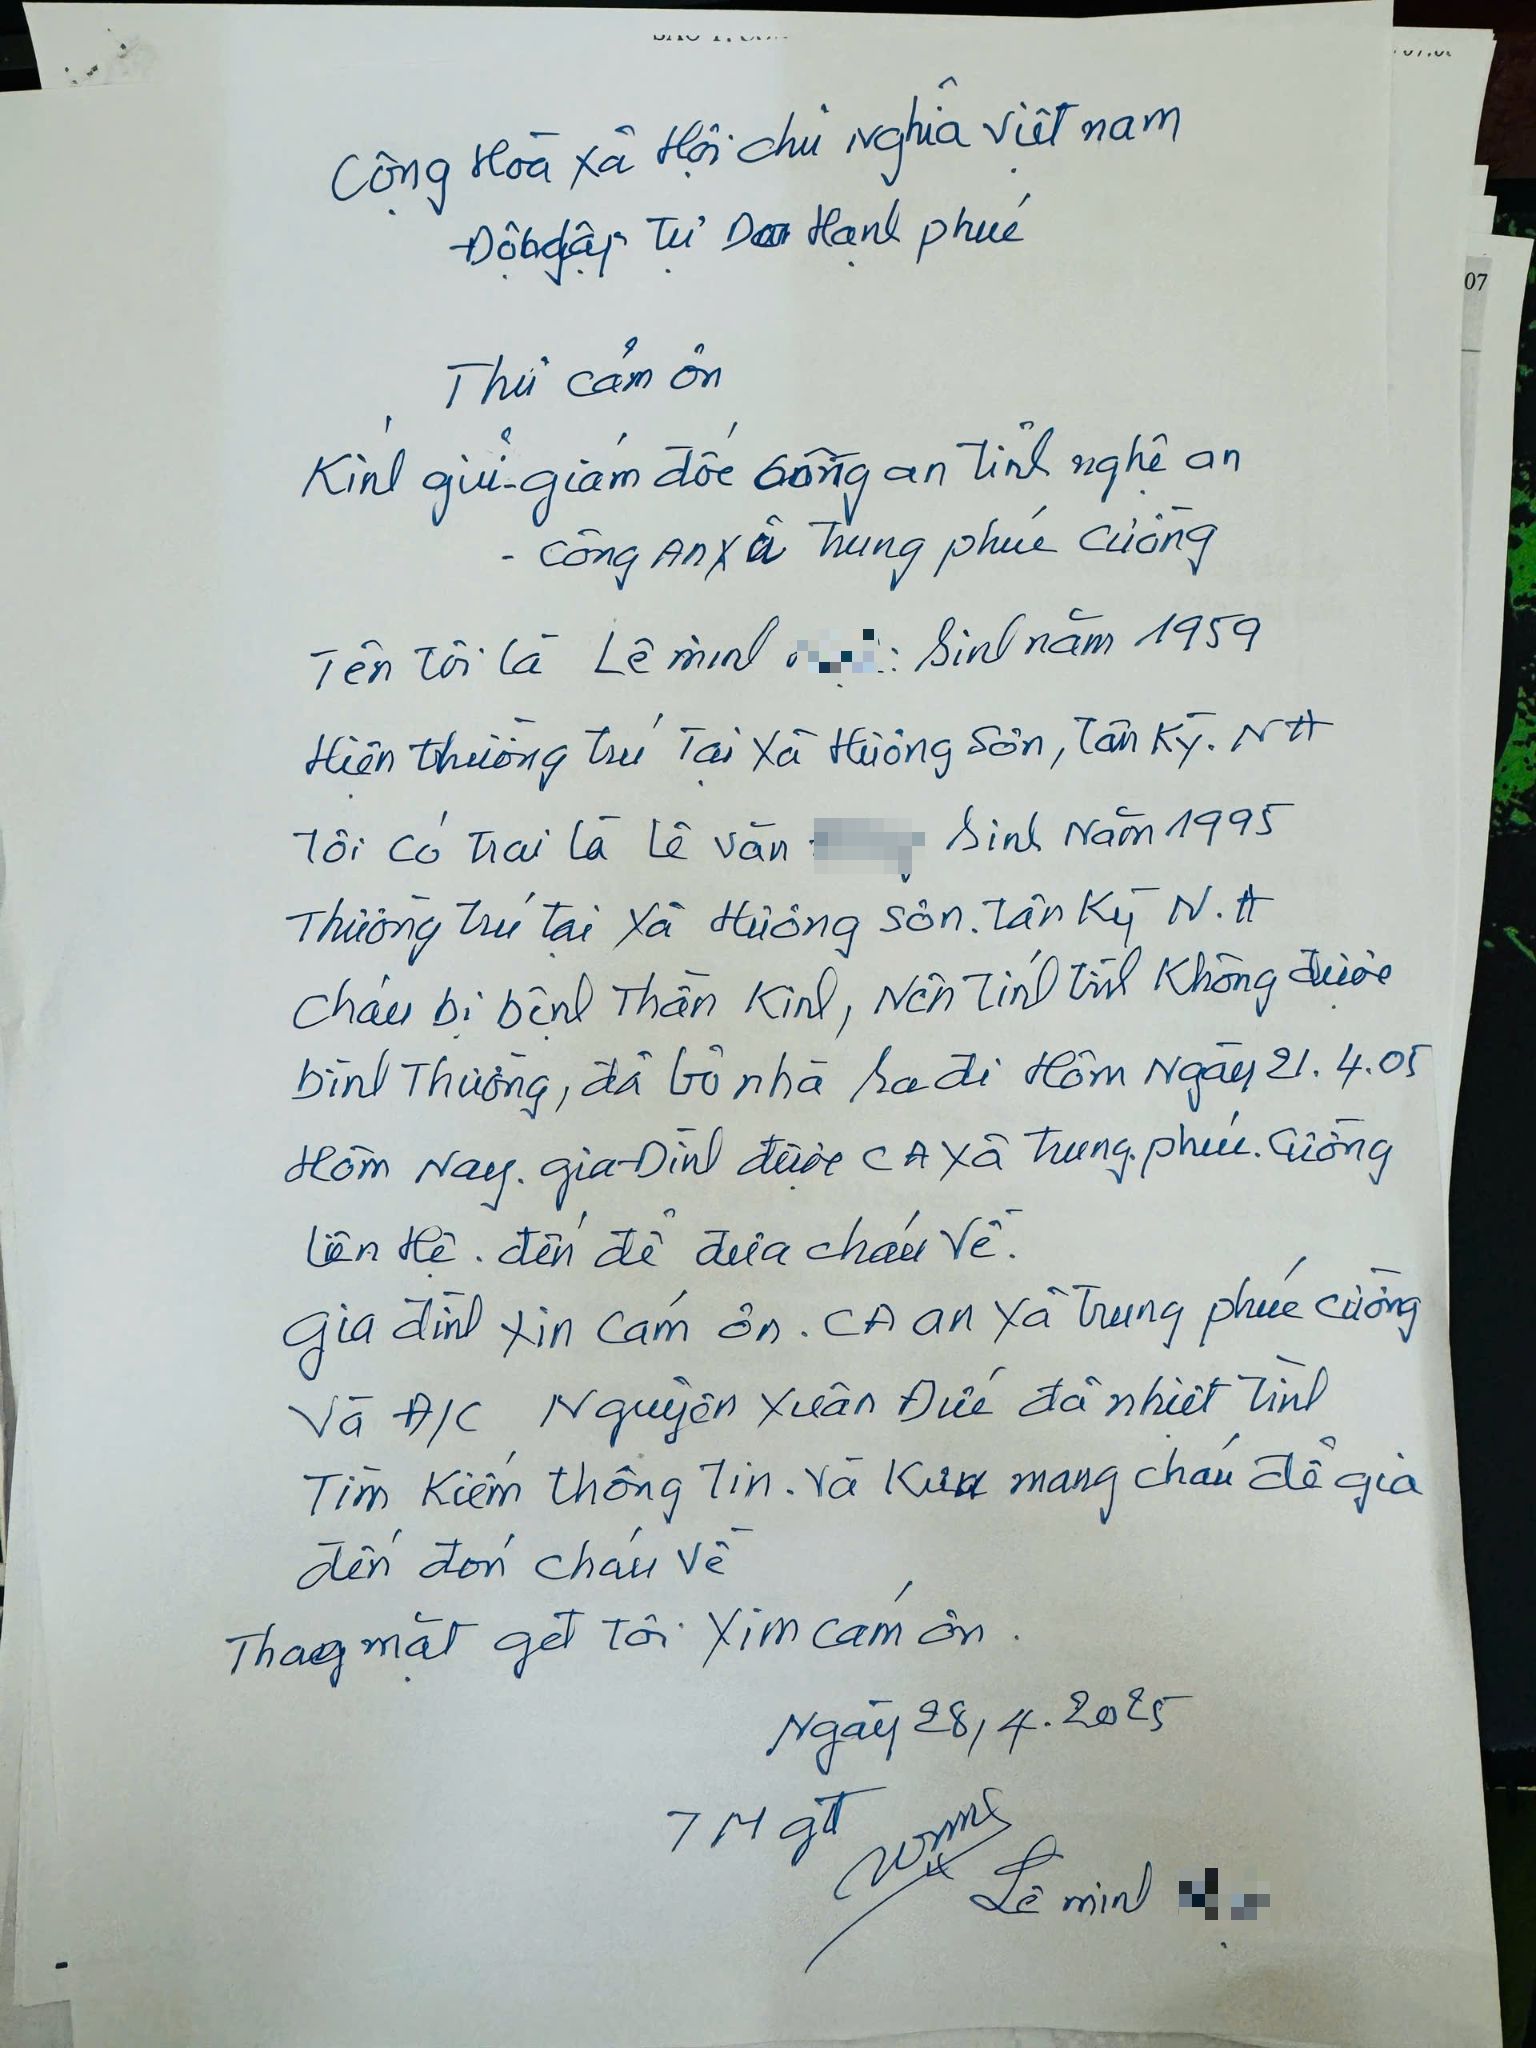 Cộng Hoà Xã Hội chủ Nghĩa Việt nam
Độc lập Tự Do Hạnh phúc
Thư cảm ơn
Kính gửi - giám đốc công an tỉnh nghệ an
- Công An Xã Trung phúc Cường
Tên tôi là Lê minh : Sinh năm 1959
Hiện thường trú Tại xã Hương Sơn, Tân Kỳ. NA
Tôi có trai là Lê văn Sinh Năm 1995
Thường trú tại xã Hương Sơn. Tân Kỳ N.A
Cháu bị bệnh Thần Kinh, Nên Tính tình Không được
bình Thường, đã bỏ nhà ra đi Hôm Ngày 21.4.05
Hôm Nay. gia Đình được CA xã Trung.phúc.Cường
liên Hệ. đến để đưa cháu về.
Gia đình xin cám ơn. CA an xã Trung phúc Cường
Và Đ/C Nguyễn Xuân Đức đã nhiệt Tình
Tìm Kiếm thông Tin. và mang cháu để gia
đến đón cháu về
Thay mặt gđ Tôi Xim cám ơn.
Ngày 28, 4. 2025
TM gđ
Lê minh
07